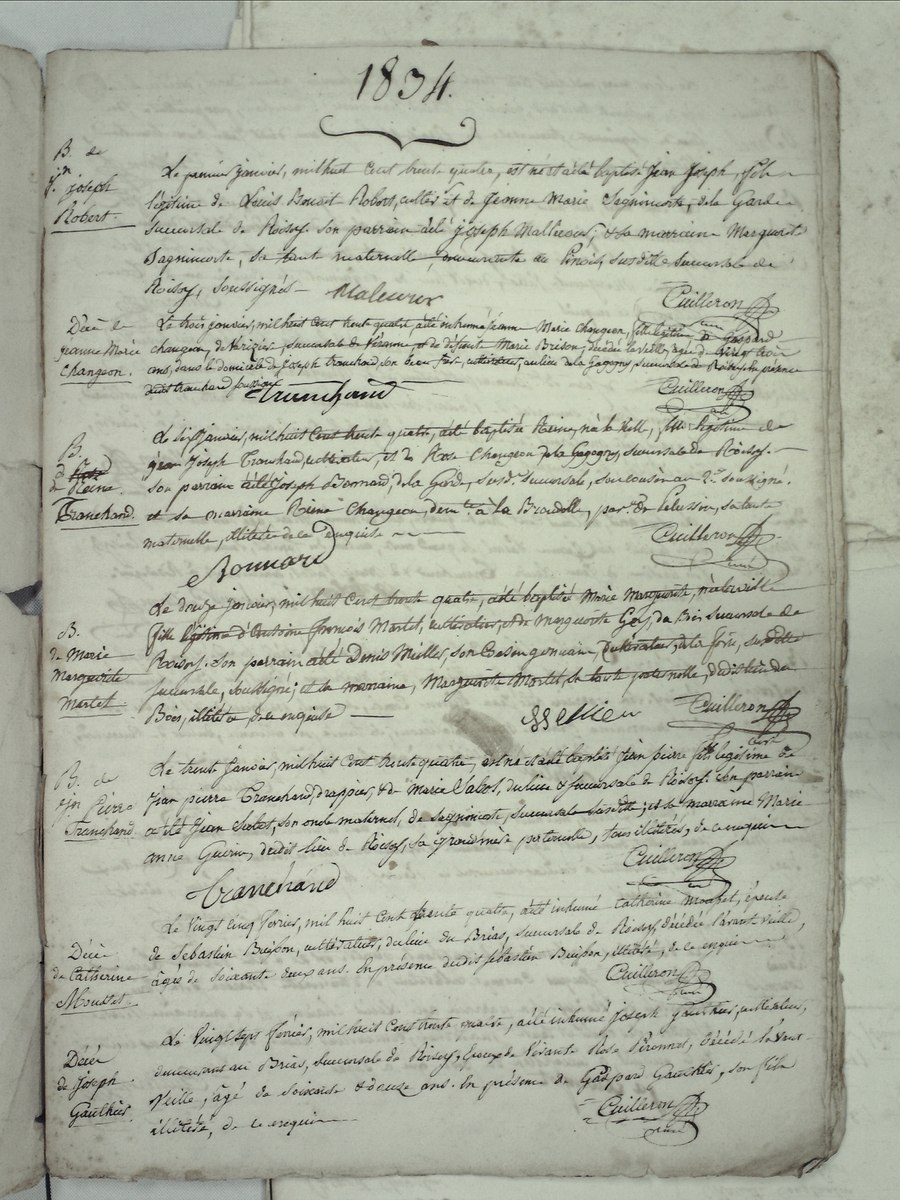 1834.
B. de
jn joseph
Robert.
Le premier janvier, mil huit cent trente quatre, est né et a été baptisé Jean Joseph, fils
légitime de Louis Benoit Robert, cultr et de Jeanne Marie Sagnimorte, de la Garde
succursale de Roisey. son parrain a été joseph; & sa marraine Marguerite
Sagnimorte, sa tante maternelle, susdite succursale de
Roisey, soussignés
Cuilleron
Décè de
jeanne Marie
Changeon.
Le trois janvier, mil huit cent trente quatre, a été inhumé jeanne Marie Changeon, fille légitime de Gaspard
changeon, de, succursale de Véranne et de défunte Marie Brison, décédée la veille, agée de vingt trois
ans, dans le domicile de joseph Tranchand son beau frère, cultivateur, au lieu de la Gagogny, succursale de Roisey. En présence
dudit tranchand soussigné
Tranchand
Cuilleron
curé
B.
de Reine
Tranchand.
Le six janvier, mil huit cent trente quatre, a été baptisée Reine, née la veille, fille légitime de
jean Joseph Tranchand, cultivateur, et de Rose Changeon de la Gagogny, succursale de Roisey.
son parrain a été joseph Bonnard, de la Garde, susde succursale, son cousin au 2e. soussigné.
et sa marraine Reine Changeon, demte à la Bourdelle, parse de Pelussin, sa tante
maternelle, illiterée de ce enquise
Bonnard
Cuilleron
curé
B.
de Marie
Marguerite
Martel
Le douze janvier, mil huit cent trente quatre, a été baptisée Marie Marguerite, née la veille
fille légitime d'Antoine françois Martel, cultivateur, et de Marguerite, du Bois succursale de
Roisey. Son parrain a été Denis, son cousin germain, cultivateur, à la, susdite
succursale, soussigné; et la marraine, Marguerite Martel, sa tante paternelle, dudit lieu du
Bois, illiterée de ce enquise
Cuilleron
curé
B. de
Jn Pierre
Tranchand
Le trente janvier, mil huit cent trente quatre, est né et a été baptisé jean pierre fils légitime de
Jean pierre Tranchand, drappier, & de Marie Jabot, du lieu & succursale de Roisey. son parrain
a été Jean, son oncle maternel, de sagnimorte, succursale susdite; et sa marraine Marie
anne, dudit lieu de Roisey, sa grandmère paternelle, tous illitérés, de ce enquis
Tranchand
Cuilleron
curé
Décè
de Catherine
Mousset
Le vingt cinq fevrier, mil huit cent trente quatre, a été inhumé Catherine Mousset, épouse
de Sebastien Buisson, cultivateur, du lieu du Brias, succursale de Roisey, décédée l'avant veille,
agée de soixante ans. En présence dudit sebastien Buisson, illitéré, de ce enquis
Cuilleron
curé
Décè
de joseph
Gauthier
Le vingt sept fevrier, mil huit cent trente quatre, a été inhumé joseph Gauthier, cultivateur,
demeurant au Brias, succursale de Roisey, époux de vivante Rose Péronnet, décédé l'avant
veille, agé de soixante & douze ans. En présence de Gaspard Gauthier, son fils
illitéré, de ce enquis
Cuilleron
curé